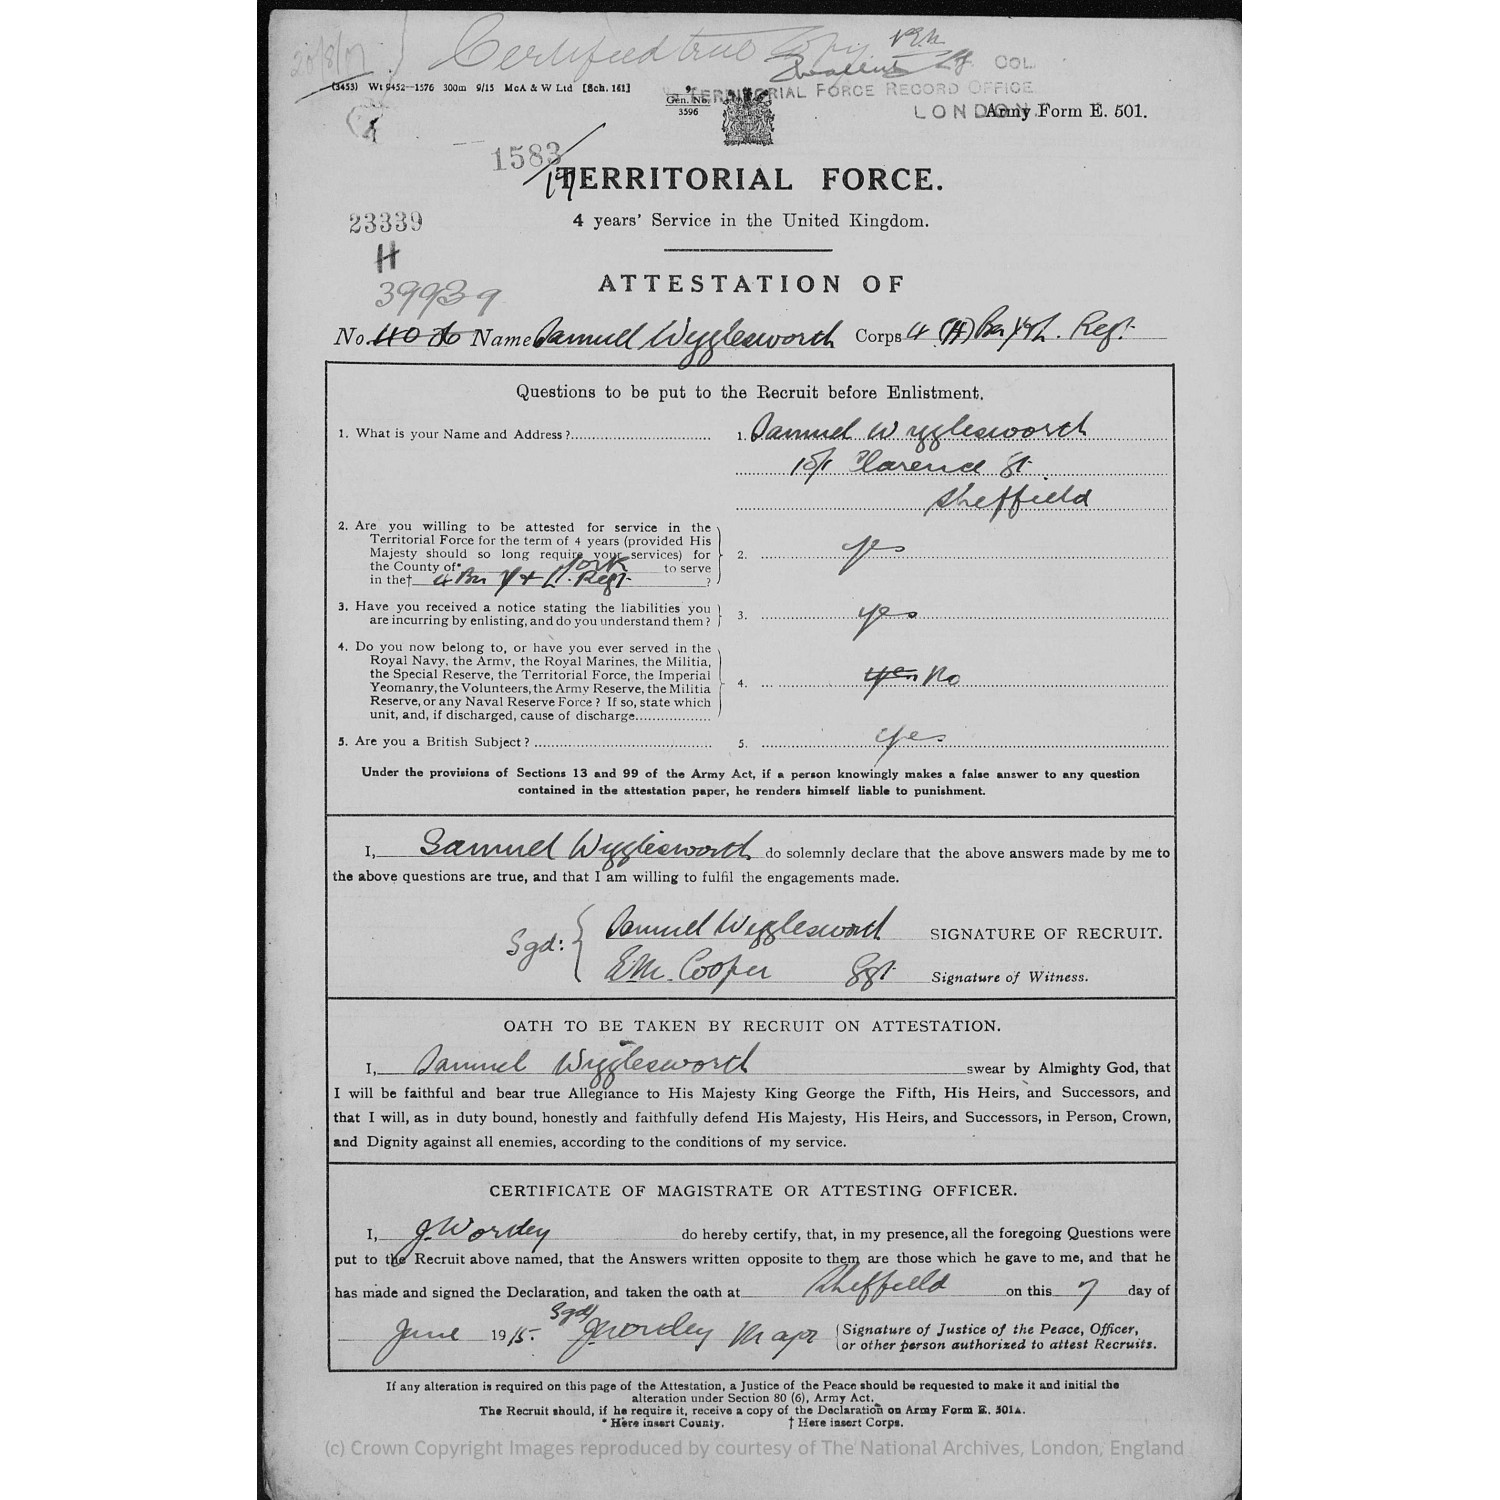 20/8/07 Certified true Copy
COL.
(3453) Wt 9452—1576 300m 9/15 McA & W Ltd [Sch. 161]
TERRITORIAL FORCE RECORD OFFICE
Gen. No. 3596
LONDON Army Form E. 501.
1583
TERRITORIAL FORCE.
23339
4 years' Service in the United Kingdom.
H
39939
ATTESTATION OF
No. Name Samuel Wigglesworth Corps 4 (H) Bn Y & L. Regt.
Questions to be put to the Recruit before Enlistment.
1. What is your Name and Address? 1. Samuel Wigglesworth
Clarence St
Sheffield
2. Are you willing to be attested for service in the
Territorial Force for the term of 4 years (provided His
Majesty should so long require your services) for
the County of* York to serve
in the† 4 Bn Y & L. Regt. ? 2. yes
3. Have you received a notice stating the liabilities you
are incurring by enlisting, and do you understand them? 3. yes
4. Do you now belong to, or have you ever served in the
Royal Navy, the Army, the Royal Marines, the Militia,
the Special Reserve, the Territorial Force, the Imperial
Yeomanry, the Volunteers, the Army Reserve, the Militia
Reserve, or any Naval Reserve Force? If so, state which
unit, and, if discharged, cause of discharge 4. yes No
5. Are you a British Subject? 5. yes
Under the provisions of Sections 13 and 99 of the Army Act, if a person knowingly makes a false answer to any question
contained in the attestation paper, he renders himself liable to punishment.
I, Samuel Wigglesworth do solemnly declare that the above answers made by me to
the above questions are true, and that I am willing to fulfil the engagements made.
Sgd: Samuel Wigglesworth SIGNATURE OF RECRUIT.
E.M. Cooper Sgt Signature of Witness.
OATH TO BE TAKEN BY RECRUIT ON ATTESTATION.
I, Samuel Wigglesworth swear by Almighty God, that
I will be faithful and bear true Allegiance to His Majesty King George the Fifth, His Heirs, and Successors, and
that I will, as in duty bound, honestly and faithfully defend His Majesty, His Heirs, and Successors, in Person, Crown,
and Dignity against all enemies, according to the conditions of my service.
CERTIFICATE OF MAGISTRATE OR ATTESTING OFFICER.
I, J. Wortley do hereby certify, that, in my presence, all the foregoing Questions were
put to the Recruit above named, that the Answers written opposite to them are those which he gave to me, and that he
has made and signed the Declaration, and taken the oath at Sheffield on this 7 day of
June 1915. Sgd/ J Wortley Major Signature of Justice of the Peace, Officer,
or other person authorized to attest Recruits.
If any alteration is required on this page of the Attestation, a Justice of the Peace should be requested to make it and initial the
alteration under Section 80 (6), Army Act.
The Recruit should, if he require it, receive a copy of the Declaration on Army Form E. 501A.
* Here insert County. † Here insert Corps.
(c) Crown Copyright Images reproduced by courtesy of The National Archives, London, England